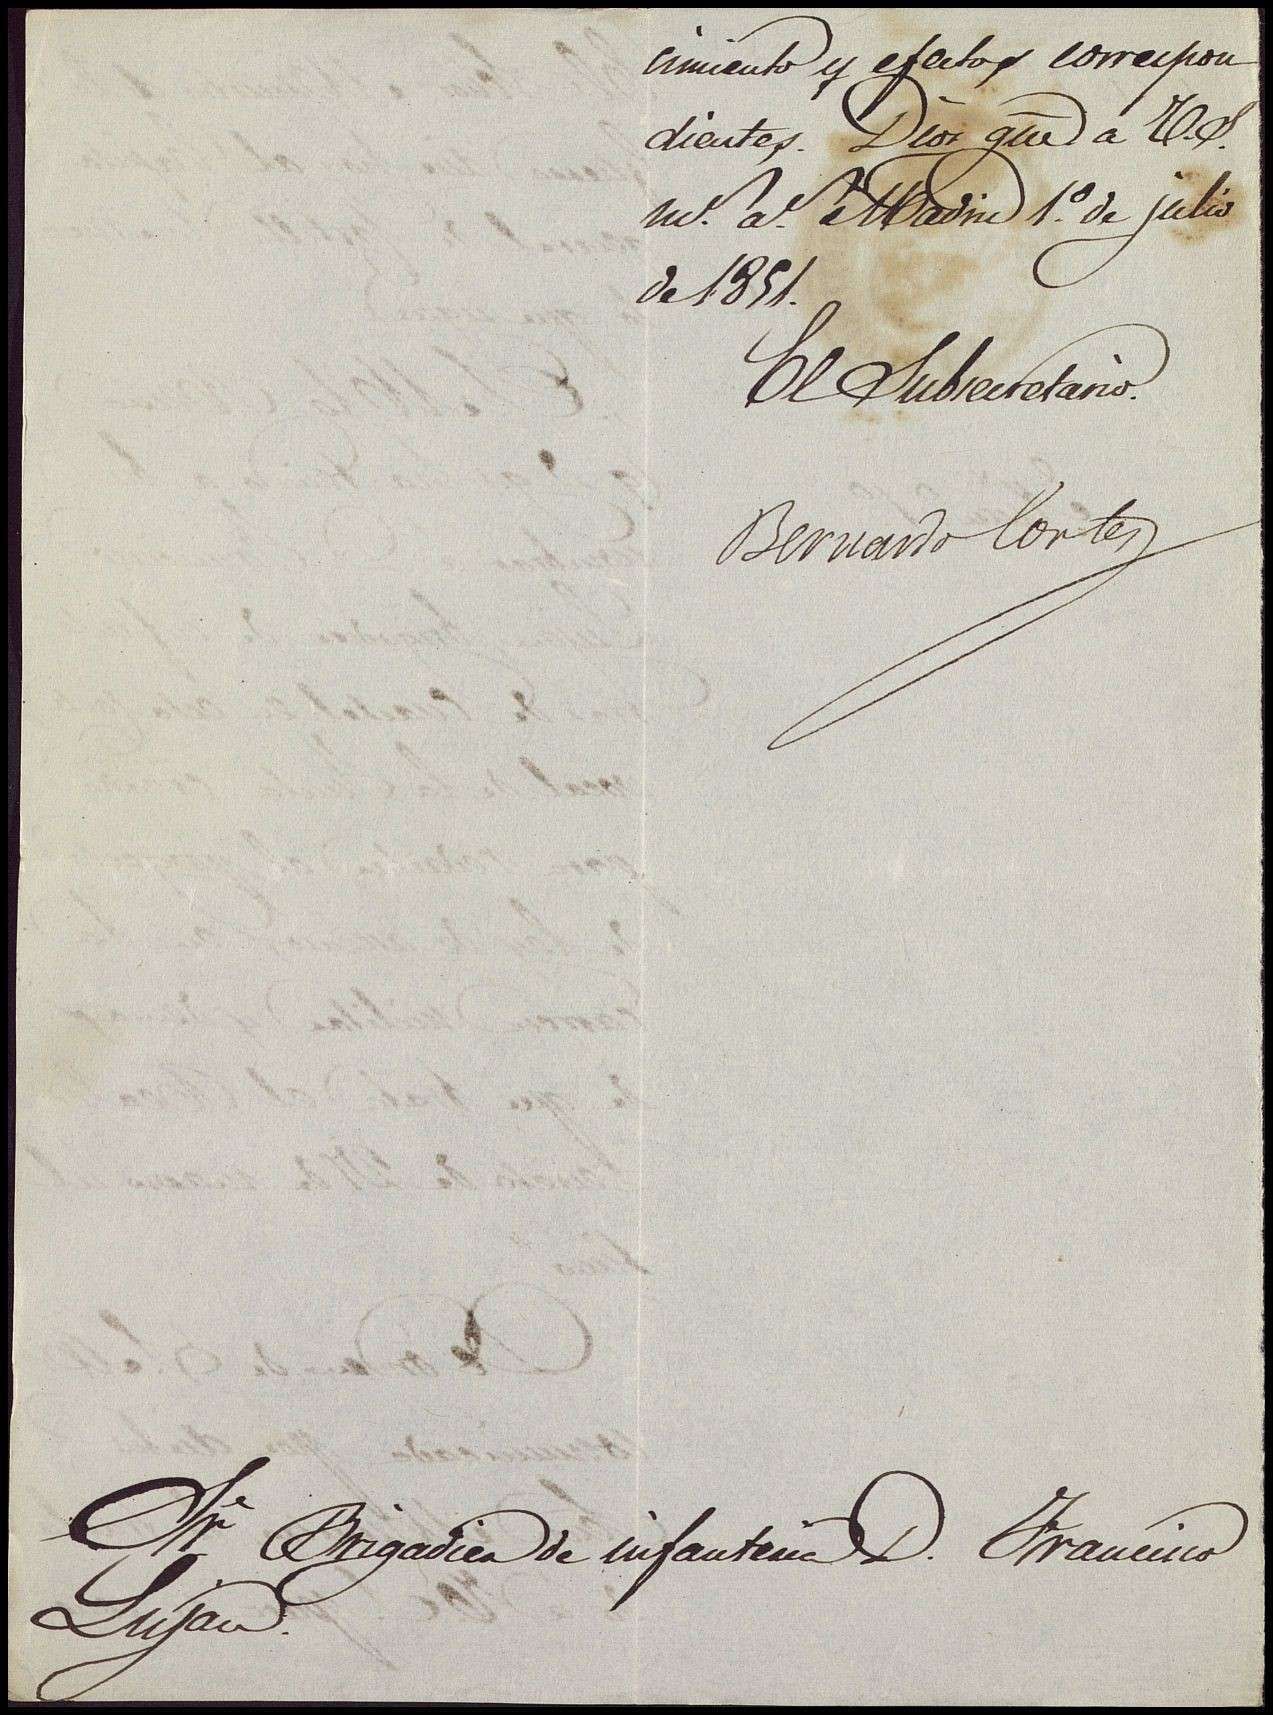 cimiento y efectos correspon
dientes. Dios gūe a V.S.
m.s a.s Madrid 1.o de julio
de 1851.
El Subsecretario.
Bernardo Cortes
Sr. Brigadier de infanteria D. Francisco
Lujan.